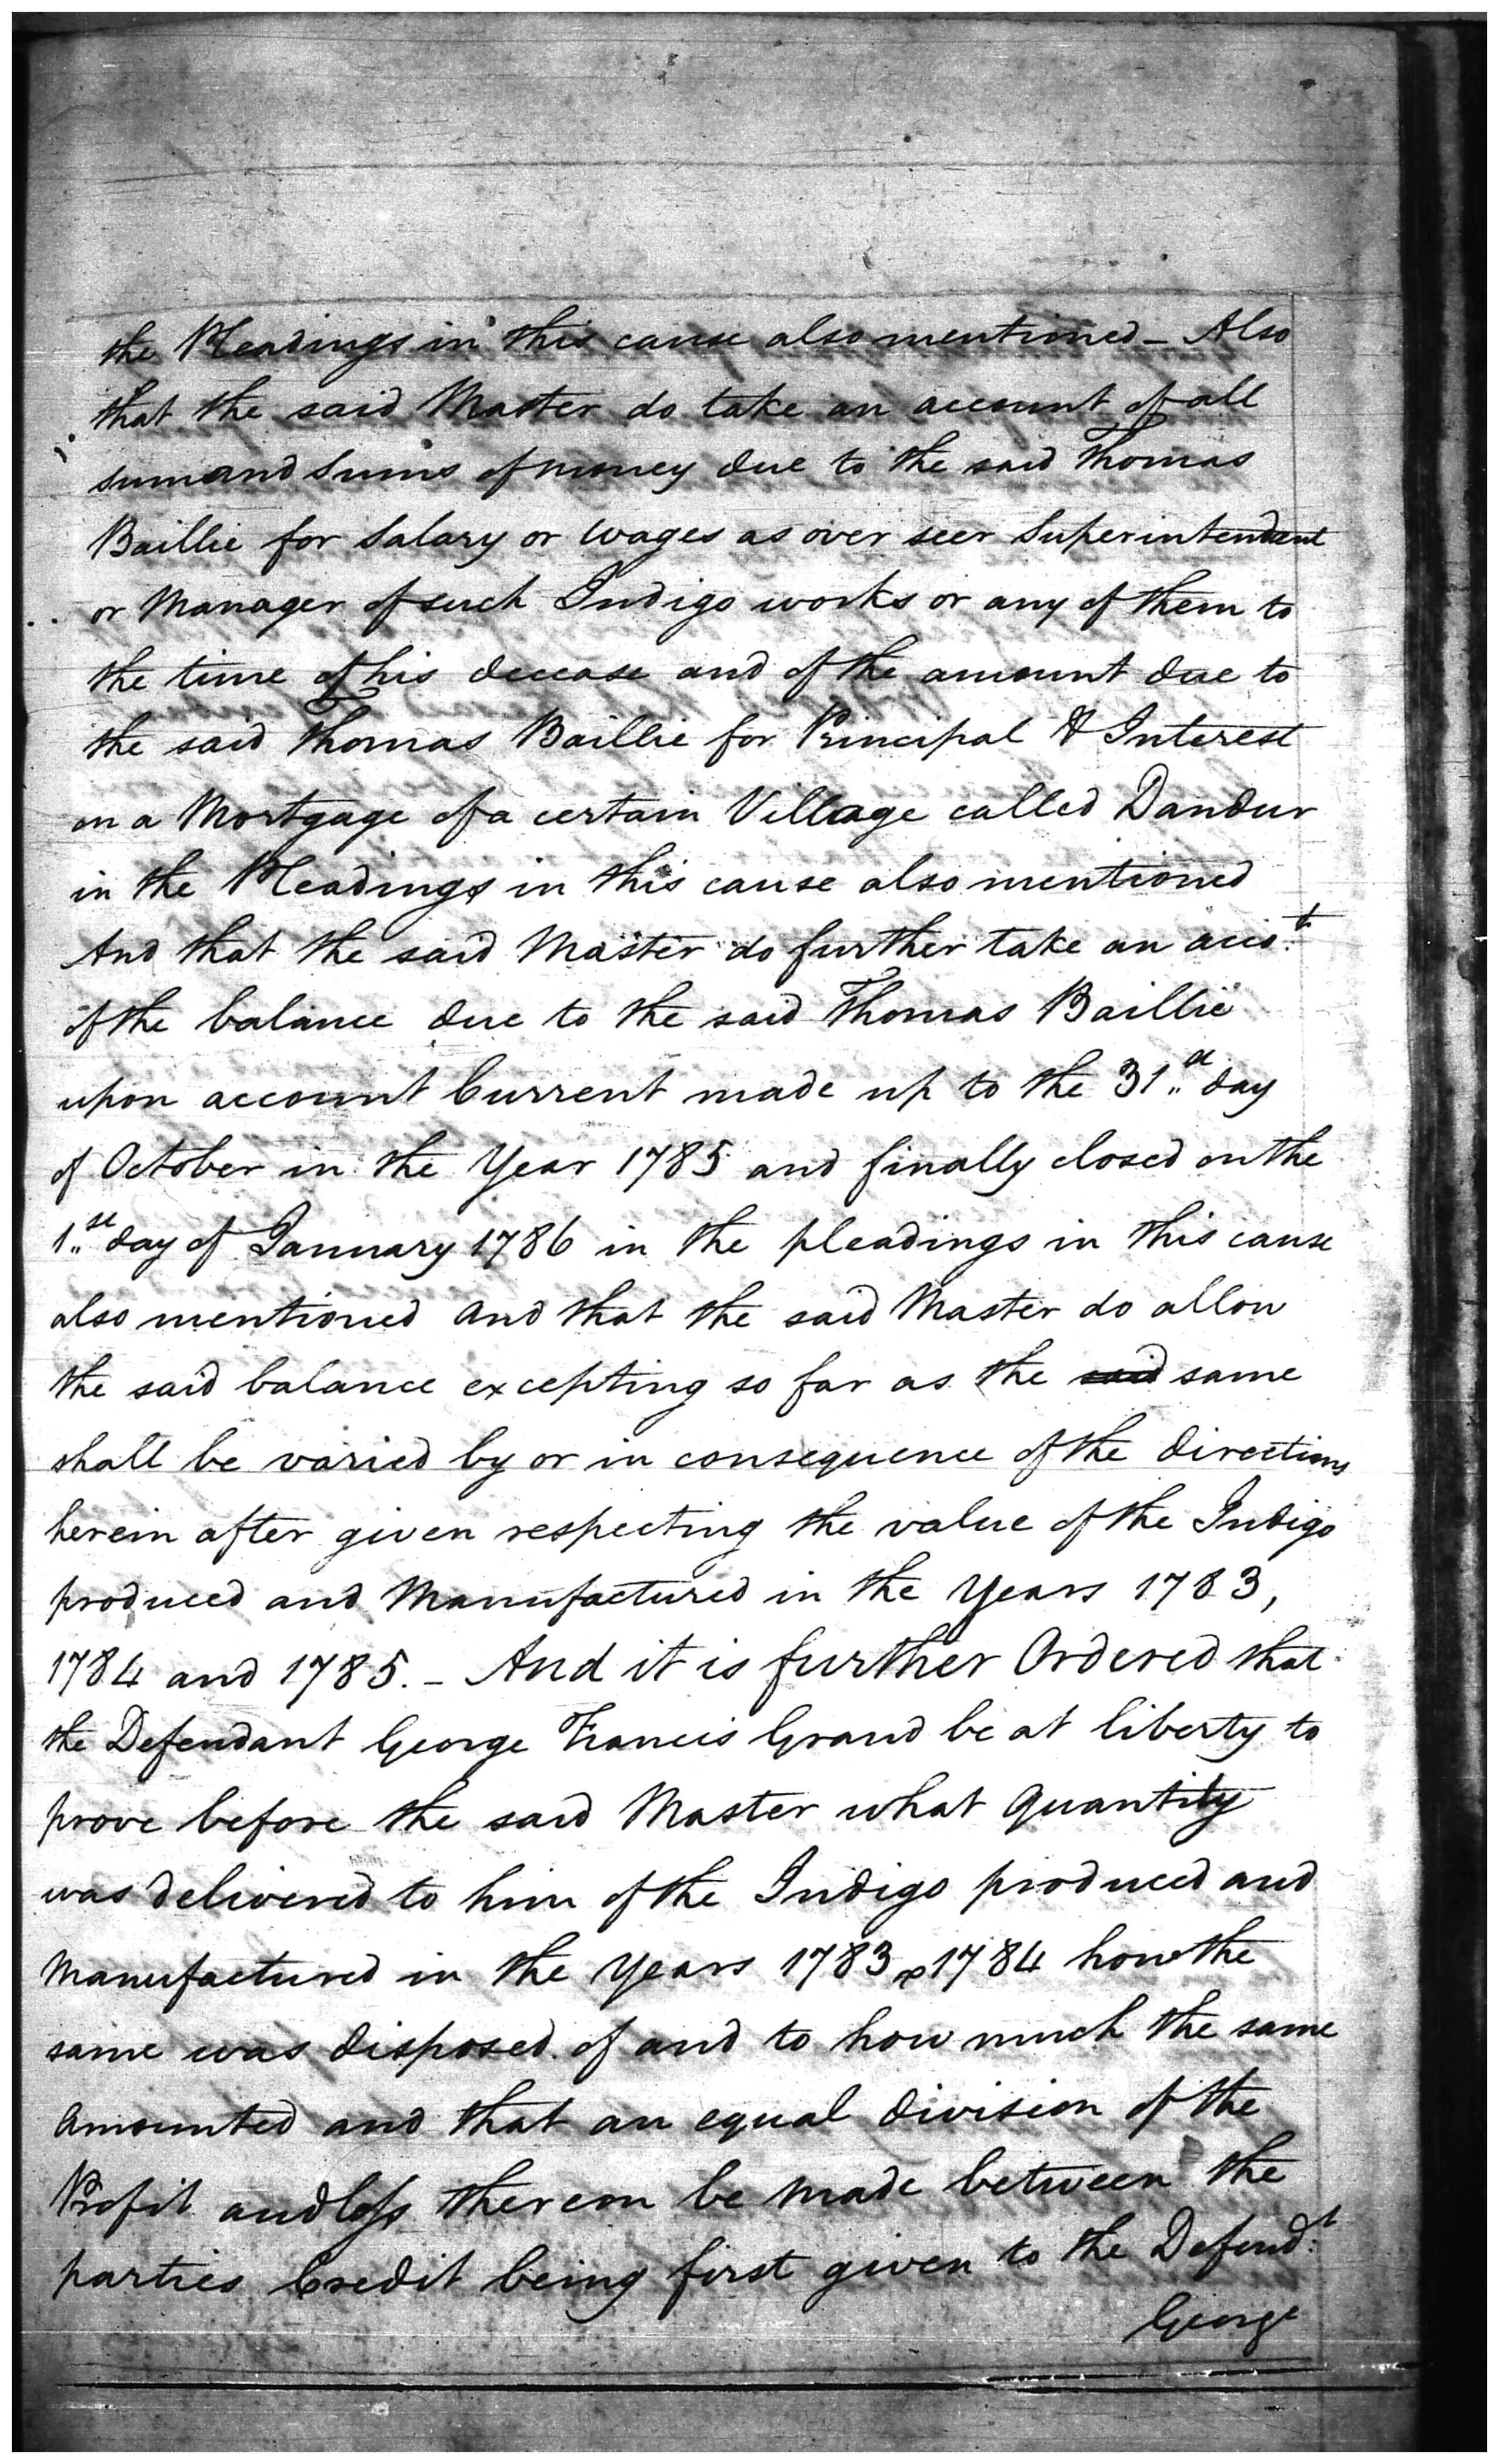 the Pleadings in this cause also mentioned - Also
that the said Master do take an account of all
sum and Sums of money due to the said Thomas
Baillie for Salary or Wages as over seer Superintendant
or Manager of such Indigo works or any of them to
the time of his decease and of the amount due to
the said Thomas Baillie for Principal & Interest
on a Mortgage of a certain Village called Dandur
in the Pleadings in this cause also mentioned
And that the said Master do further take an acco.t
of the balance due to the said Thomas Baillie
upon account Current made up to the 31.st day
of October in the Year 1785 and finally closed on the
1.st day of January 1786 in the pleadings in this cause
also mentioned and that the said Master do allow
the said balance excepting so far as the said same
shall be varied by or in consequence of the directions
herein after given respecting the value of the Indigo
produced and Manufactured in the Years 1783,
1784 and 1785. - And it is further Ordered that
the Defendant George Francis Grand be at liberty to
prove before the said Master what Quantity
was delivered to him of the Indigo produced and
Manufactured in the Years 1783 & 1784 how the
same was disposed of and to how much the same
Amounted and that an equal division of the
Profit and loss thereon be made between the
parties Credit being first given to the Defend.t
George